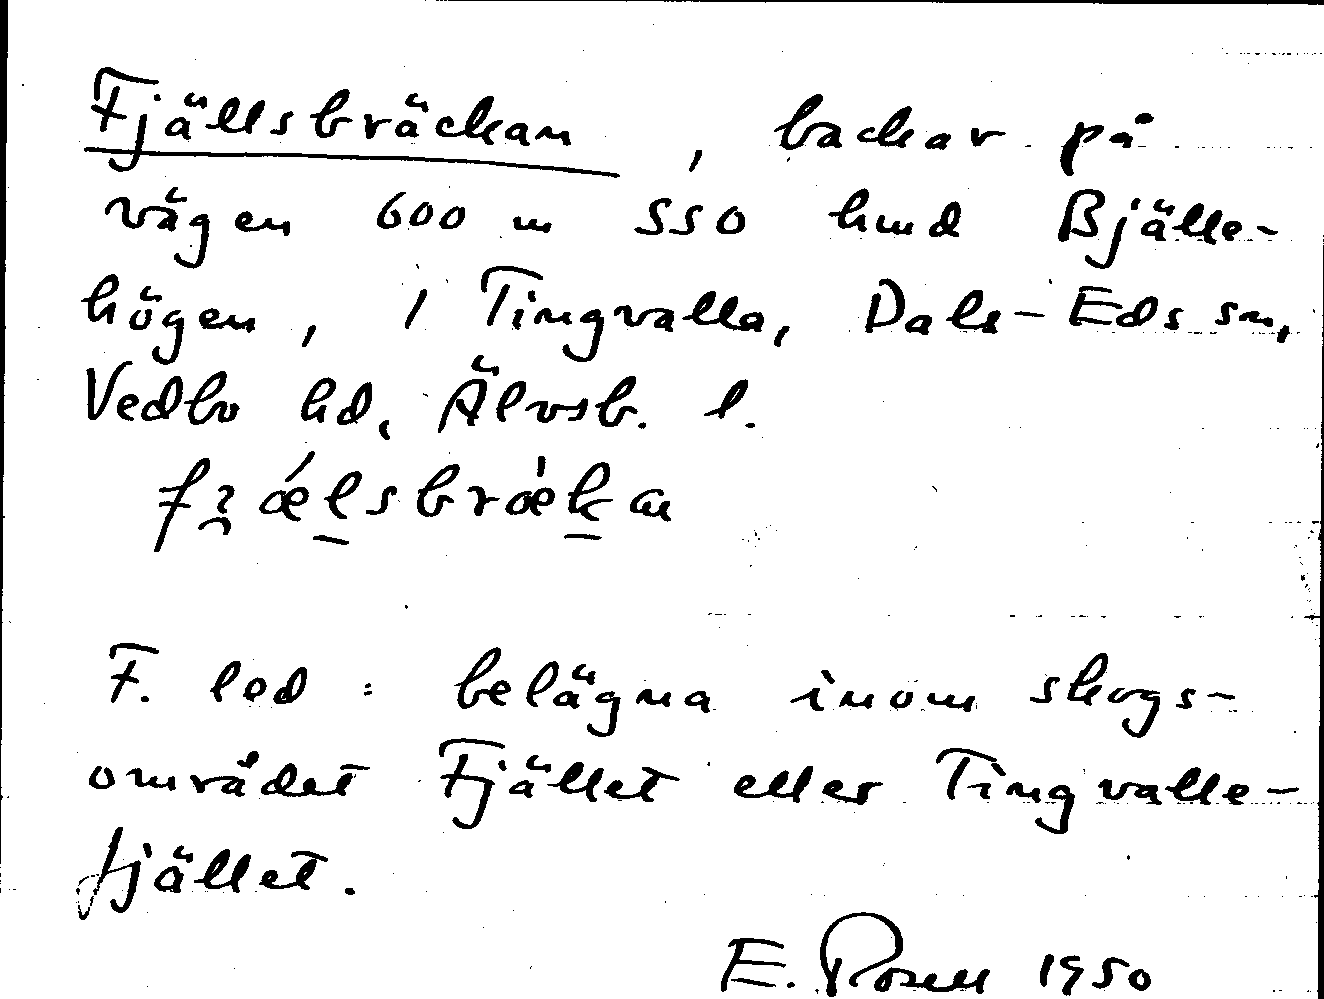 Fjällsbräckan, backar på
vägen 600 m SSO hmd Bjälle-
högen, 1 Tingvalla, Dals-Eds sn,
Vedbo hd, Älvsb. l.
F. led: belägna inom skogs-
området Fjället eller Tingvalle-
fjället.
E. Rosell 1950